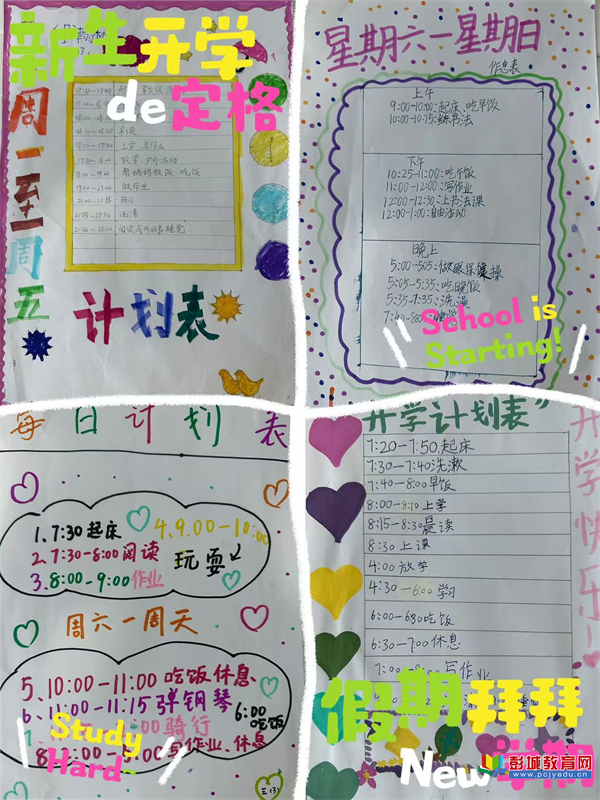 新生开学
de定格
周一至周五
07:30-07:40
上学
放学 户外活动
做作业
预习
洗漱
计划表
星期六一星期日
作息表
上午
9:00-10:00:起床、吃早饭
10:00-10:15:练书法
下午
10:25-11:00:吃午饭
11:00-12:00:写作业
12:00-12:30:上书法课
12:00-1:00:自由活动
晚上
5:00-505:做眼保健操
5:05-5:35:吃晚饭
5:35-7:35:洗澡
School is
Starting!
每日计划表
1、7:30起床
2、7:30-8:00阅读
3、8:00-9:00作业
4、9.00-10:00
玩耍
周六一周天
5、10:00-11:00 吃饭休息、
6、11:00-11:15弹钢琴
骑行
6:00
吃饭
写作业、休息
Study
Hard
三(3)
开学计划表”
开学快乐!
7:20-7:50.起床
7:30-7:40洗漱
7:40-8:00早饭
8:00-8:10上学
8:15-8:30晨读
8:30上课
4:00放学
4:30-6:00学习
6:00-6:30吃饭
6:30-7:00休息
写作业
假期拜拜
New学期
彭城教育网
www.pcjyedu.cn